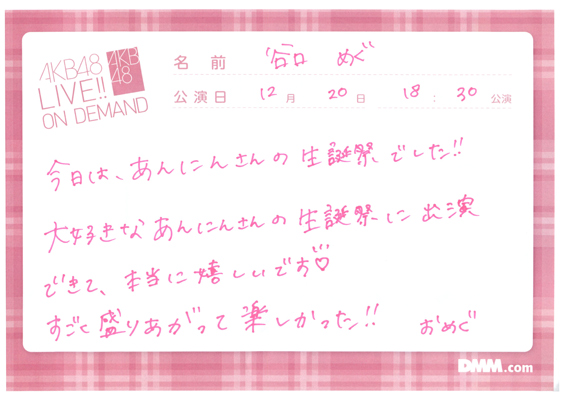 AKB48
LIVE!!
ON DEMAND
AKB
48
名前 谷口 めぐ
公演日 12月 20日 18:30 公演
今日は、あんにんさんの生誕祭でした!!
大好きなあんにんさんの生誕祭に出演
できて、本当に嬉しいです♡
すごく盛りあがって楽しかった!! おめぐ
DMM.com